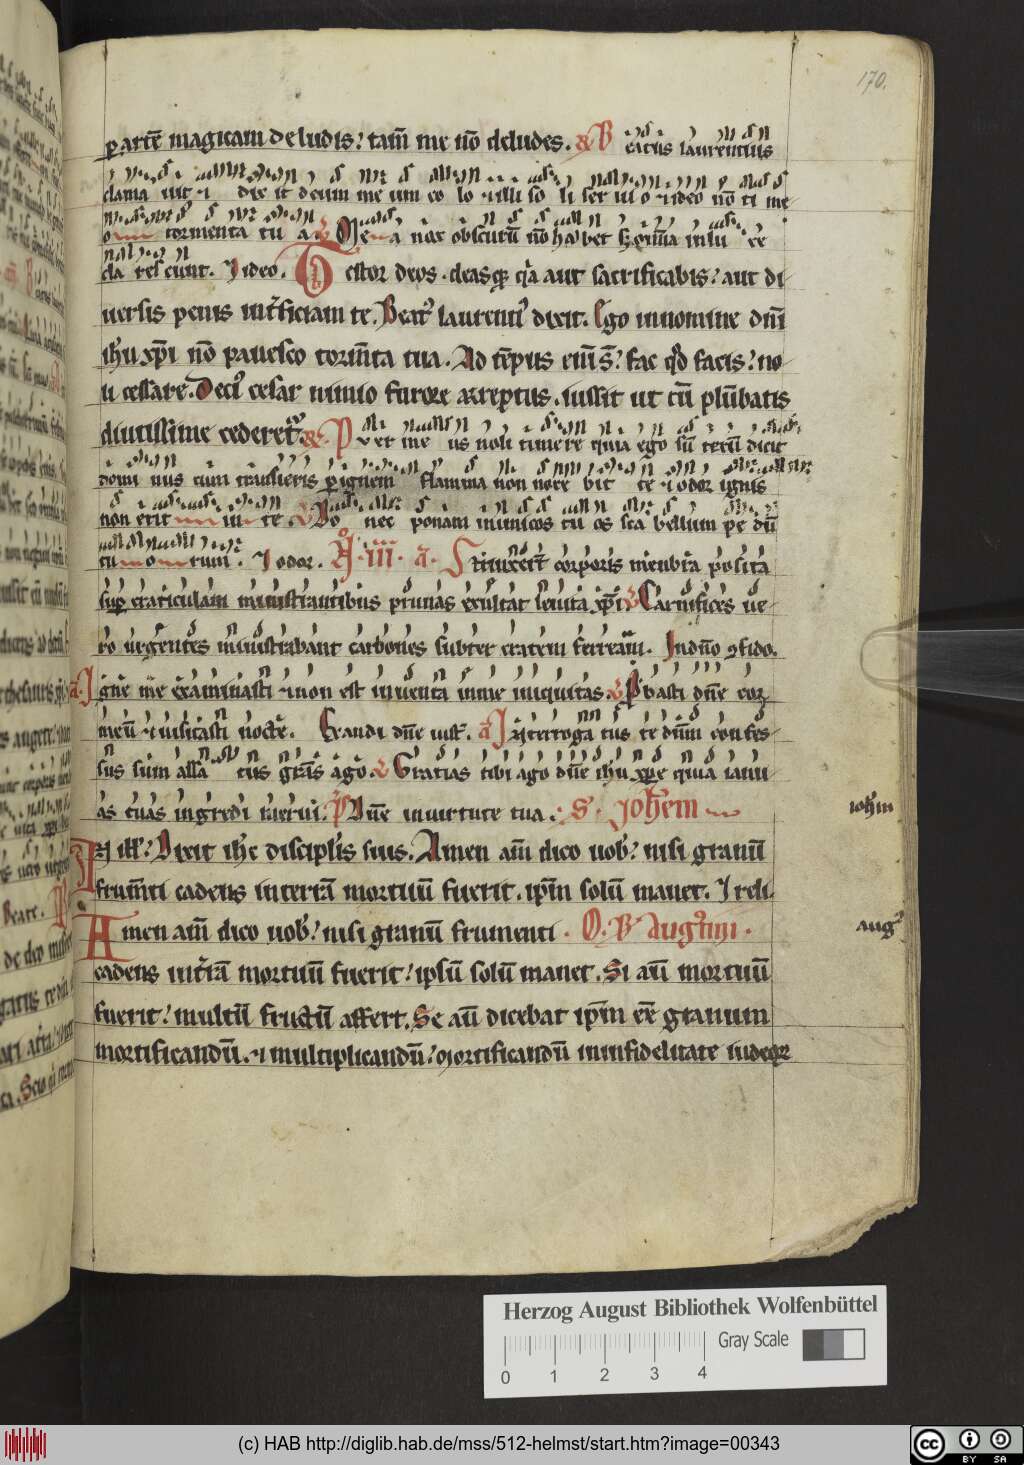 170.
ꝑ artē magicam deludis? tam̄ me nō deludes. ℞ B eatus laurentius
clama uit ⁊ dix it deum me um co lo ⁊ illi so li ser ui o ⁊ ideo nō ti me
o tormenta tu a ℣ Mea nox obscurū nō habet s; om̄ia in lu ce
cla rescunt. Ideo. T estor deos. deasq; q̄a aut sacrificabis? aut di
uersis penis int̄ficiam te. Beat᷒ laurenti᷒ dixit. Ego in nomine dn̄i
ih̄u xp̄i nō pauesco torm̄ta tua. Ad tēpus eni s̄? fac qd̄ facis? no
li cessare. Deci᷒ cesar nimio furore arreptus. iussit ut cū plūbatis
diutissime cederet᷒. ℞ P u er me us noli timere quia ego sū tecū dicit
domi nus cum transieris ꝑ ignem flamma non noce bit te ⁊ odor ignis
non erit in te ℣ Po nec ponam inimicos tu os sca bellum pe dū
tu o rum. ⁊ odor. Aº .iii. a. Strinxert̄ corporis membra posita
suꝑ craticulam ministrantibus prunas exultat leuita xp̄i ℣ Carnifices ue
ro urgentes ministrabant carbones subter cratem ferream. In dn̄o ꝯfido.
a. I gne me examinasti ⁊ non est inuenta in me iniquitas. ℣ Pbasti dn̄e cor
meū ⁊ uisitasti nocte. Exaudi dn̄e iust̄. a I nterroga tus te dn̄m confes
sus sum assa tus grās ago. ℣ Gratias tibi ago dn̄e ih̄u xp̄e quia ianu
as tuas ingredi merui. ℣ Dn̄e in uirtute tua. S. Johēm
ioh̄m
I N ill̄? Dixit ih̄c discipl̄is suis. Amen am̄ dico uob᷒? nisi granū
frum̄ti cadens in terrā mortuū fuerit. ip̄m solū manet. ⁊ reli.
A men am̄ dico uob᷒? nisi granū frumenti. O. B' augustini.
aug᷒
cadens int̄rā mortuū fuerit? ipsū solū manet. Si aū mortuū
fuerit? multū fructū affert. Se aū dicebat ip̄m eē granum
mortificandū. ⁊ multiplicandū? mortificandū in infidelitate iudeoꝝ
Herzog August Bibliothek Wolfenbüttel
Gray Scale
0 1 2 3 4
(c) HAB http://diglib.hab.de/mss/512-helmst/start.htm?image=00343
cc BY SA